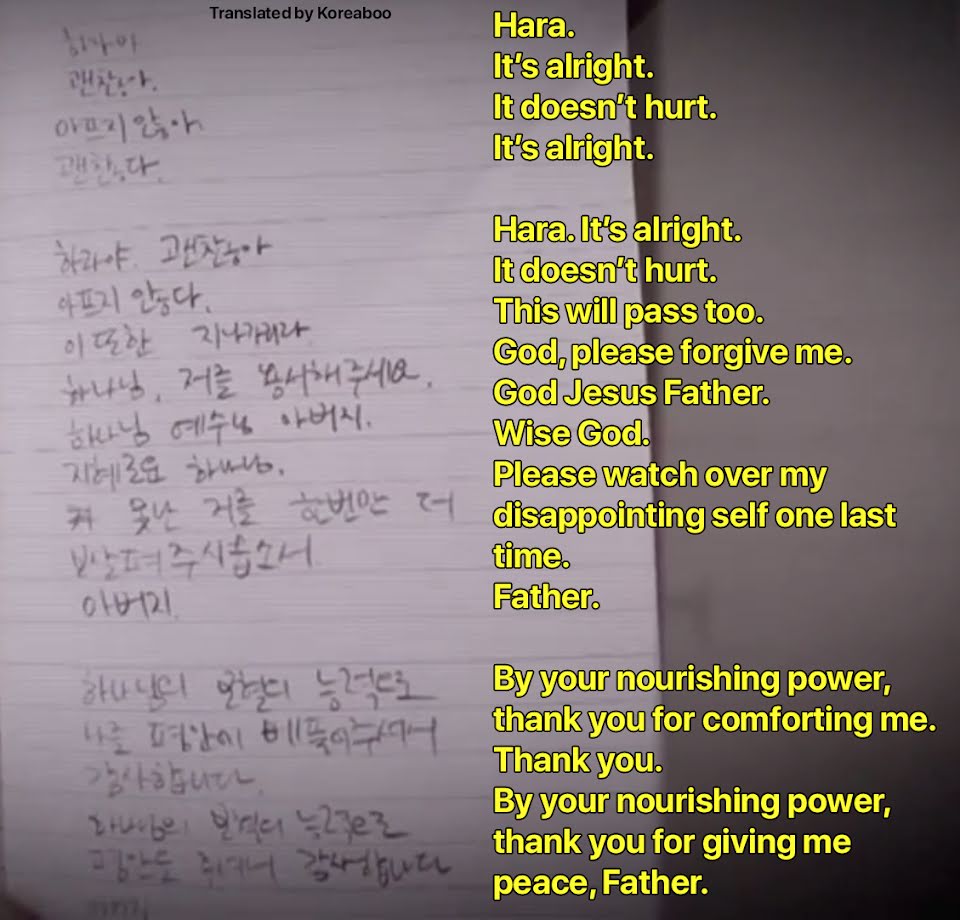 Translated by Koreaboo
하라야
괜찮아.
아프지 않아
괜찮다.
하라야. 괜찮아
아프지 않다.
이 또한 지나가리라
하나님, 저를 용서해주세요.
하나님 예수님 아버지.
지혜로운 하나님.
못난 저를 한번만 더
아버지.
하나님의 보혈의 능력으로
나를 평안히 베풀어주셔서
감사합니다.
하나님의 보혈의 능력으로
감사합니다
Hara.
It's alright.
It doesn't hurt.
It's alright.
Hara. It's alright.
It doesn't hurt.
This will pass too.
God, please forgive me.
God Jesus Father.
Wise God.
Please watch over my
disappointing self one last
time.
Father.
By your nourishing power,
thank you for comforting me.
Thank you.
By your nourishing power,
thank you for giving me
peace, Father.